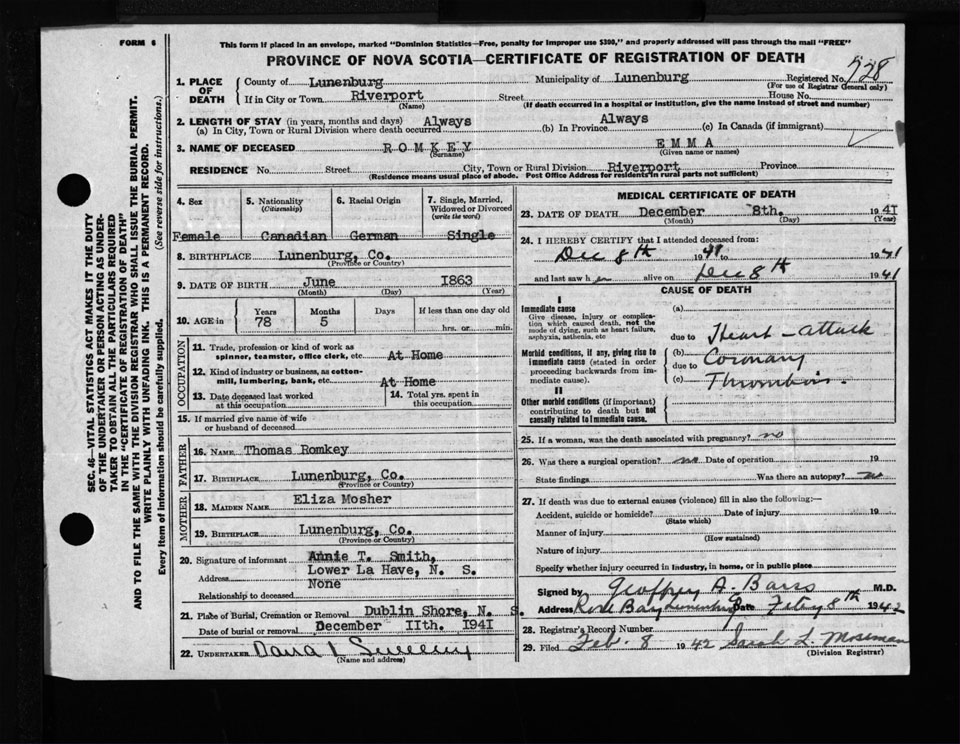 FORM 6
This form if placed in an envelope, marked "Dominion Statistics—Free, penalty for improper use $300," and properly addressed will pass through the mail "FREE"
PROVINCE OF NOVA SCOTIA—CERTIFICATE OF REGISTRATION OF DEATH
1. PLACE OF DEATH
County of Lunenburg Municipality of Lunenburg Registered No. 728
(For use of Registrar General only)
If in City or Town Riverport Street House No.
(Name) (If death occurred in a hospital or institution, give the name instead of street and number)
2. LENGTH OF STAY (in years, months and days)
(a) In City, Town or Rural Division where death occurred Always (b) In Province Always (c) In Canada (if immigrant)
3. NAME OF DECEASED ROMKEY EMMA
(Surname) (Given name or names)
RESIDENCE No. Street City, Town or Rural Division Riverport Province
(Residence means usual place of abode. Post Office Address for residents in rural parts not sufficient)
4. Sex 5. Nationality (Citizenship) 6. Racial Origin 7. Single, Married, Widowed or Divorced (write the word)
Female Canadian German Single
8. BIRTHPLACE Lunenburg, Co.
(Province or Country)
9. DATE OF BIRTH June 1863
(Month) (Day) (Year)
10. AGE in Years Months Days If less than one day old
78 5 hrs. or min.
OCCUPATION
11. Trade, profession or kind of work as spinner, teamster, office clerk, etc. At Home
12. Kind of industry or business, as cotton-mill, lumbering, bank, etc. At Home
13. Date deceased last worked at this occupation
14. Total yrs. spent in this occupation
15. If married give name of wife or husband of deceased
FATHER
16. NAME Thomas Romkey
17. BIRTHPLACE Lunenburg, Co.
(Province or Country)
MOTHER
18. MAIDEN NAME Eliza Mosher
19. BIRTHPLACE Lunenburg, Co.
(Province or Country)
20. Signature of informant Annie T. Smith,
Address Lower La Have, N. S.
Relationship to deceased None
21. Place of Burial, Cremation or Removal Dublin Shore, N. S.
Date of burial or removal December IIth. 1941
22. UNDERTAKER
(Name and address)
MEDICAL CERTIFICATE OF DEATH
23. DATE OF DEATH December 8th. 1941
(Month) (Day) (Year)
24. I HEREBY CERTIFY that I attended deceased from:
Dec 8th 1941 to 1941
and last saw h er alive on Dec 8th 1941
CAUSE OF DEATH
I
Immediate cause
Give disease, injury or complication which caused death, not the mode of dying, such as heart failure, asphyxia, asthenia, etc
Morbid conditions, if any, giving rise to immediate cause (stated in order proceeding backwards from immediate cause).
II
Other morbid conditions (if important) contributing to death but not causally related to immediate cause.
(a)
due to Heart-attack
(b) Coronary
due to
(c) Thrombosis.
25. If a woman, was the death associated with pregnancy? no
26. Was there a surgical operation? no Date of operation 19
State findings Was there an autopsy? no
27. If death was due to external causes (violence) fill in also the following:—
Accident, suicide or homicide? Date of injury 19
(State which)
Manner of injury
(How sustained)
Nature of injury
Specify whether injury occurred in industry, in home, or in public place
Signed by Geoffrey A. Barss M.D.
Address Rose Bay Lunenburg Date Feby 8th 1942
28. Registrar's Record Number
29. Filed Feb. 8 1942 Sarah L. Moseman
(Division Registrar)
SEC. 46—VITAL STATISTICS ACT MAKES IT THE DUTY
OF THE UNDERTAKER OR PERSON ACTING AS UNDER-
TAKER TO OBTAIN ALL THE PARTICULARS REQUIRED
IN THE "CERTIFICATE OF REGISTRATION OF DEATH"
AND TO FILE THE SAME WITH THE DIVISION REGISTRAR WHO SHALL ISSUE THE BURIAL PERMIT.
WRITE PLAINLY WITH UNFADING INK. THIS IS A PERMANENT RECORD.
Every item of information should be carefully supplied. (See reverse side for instructions.)